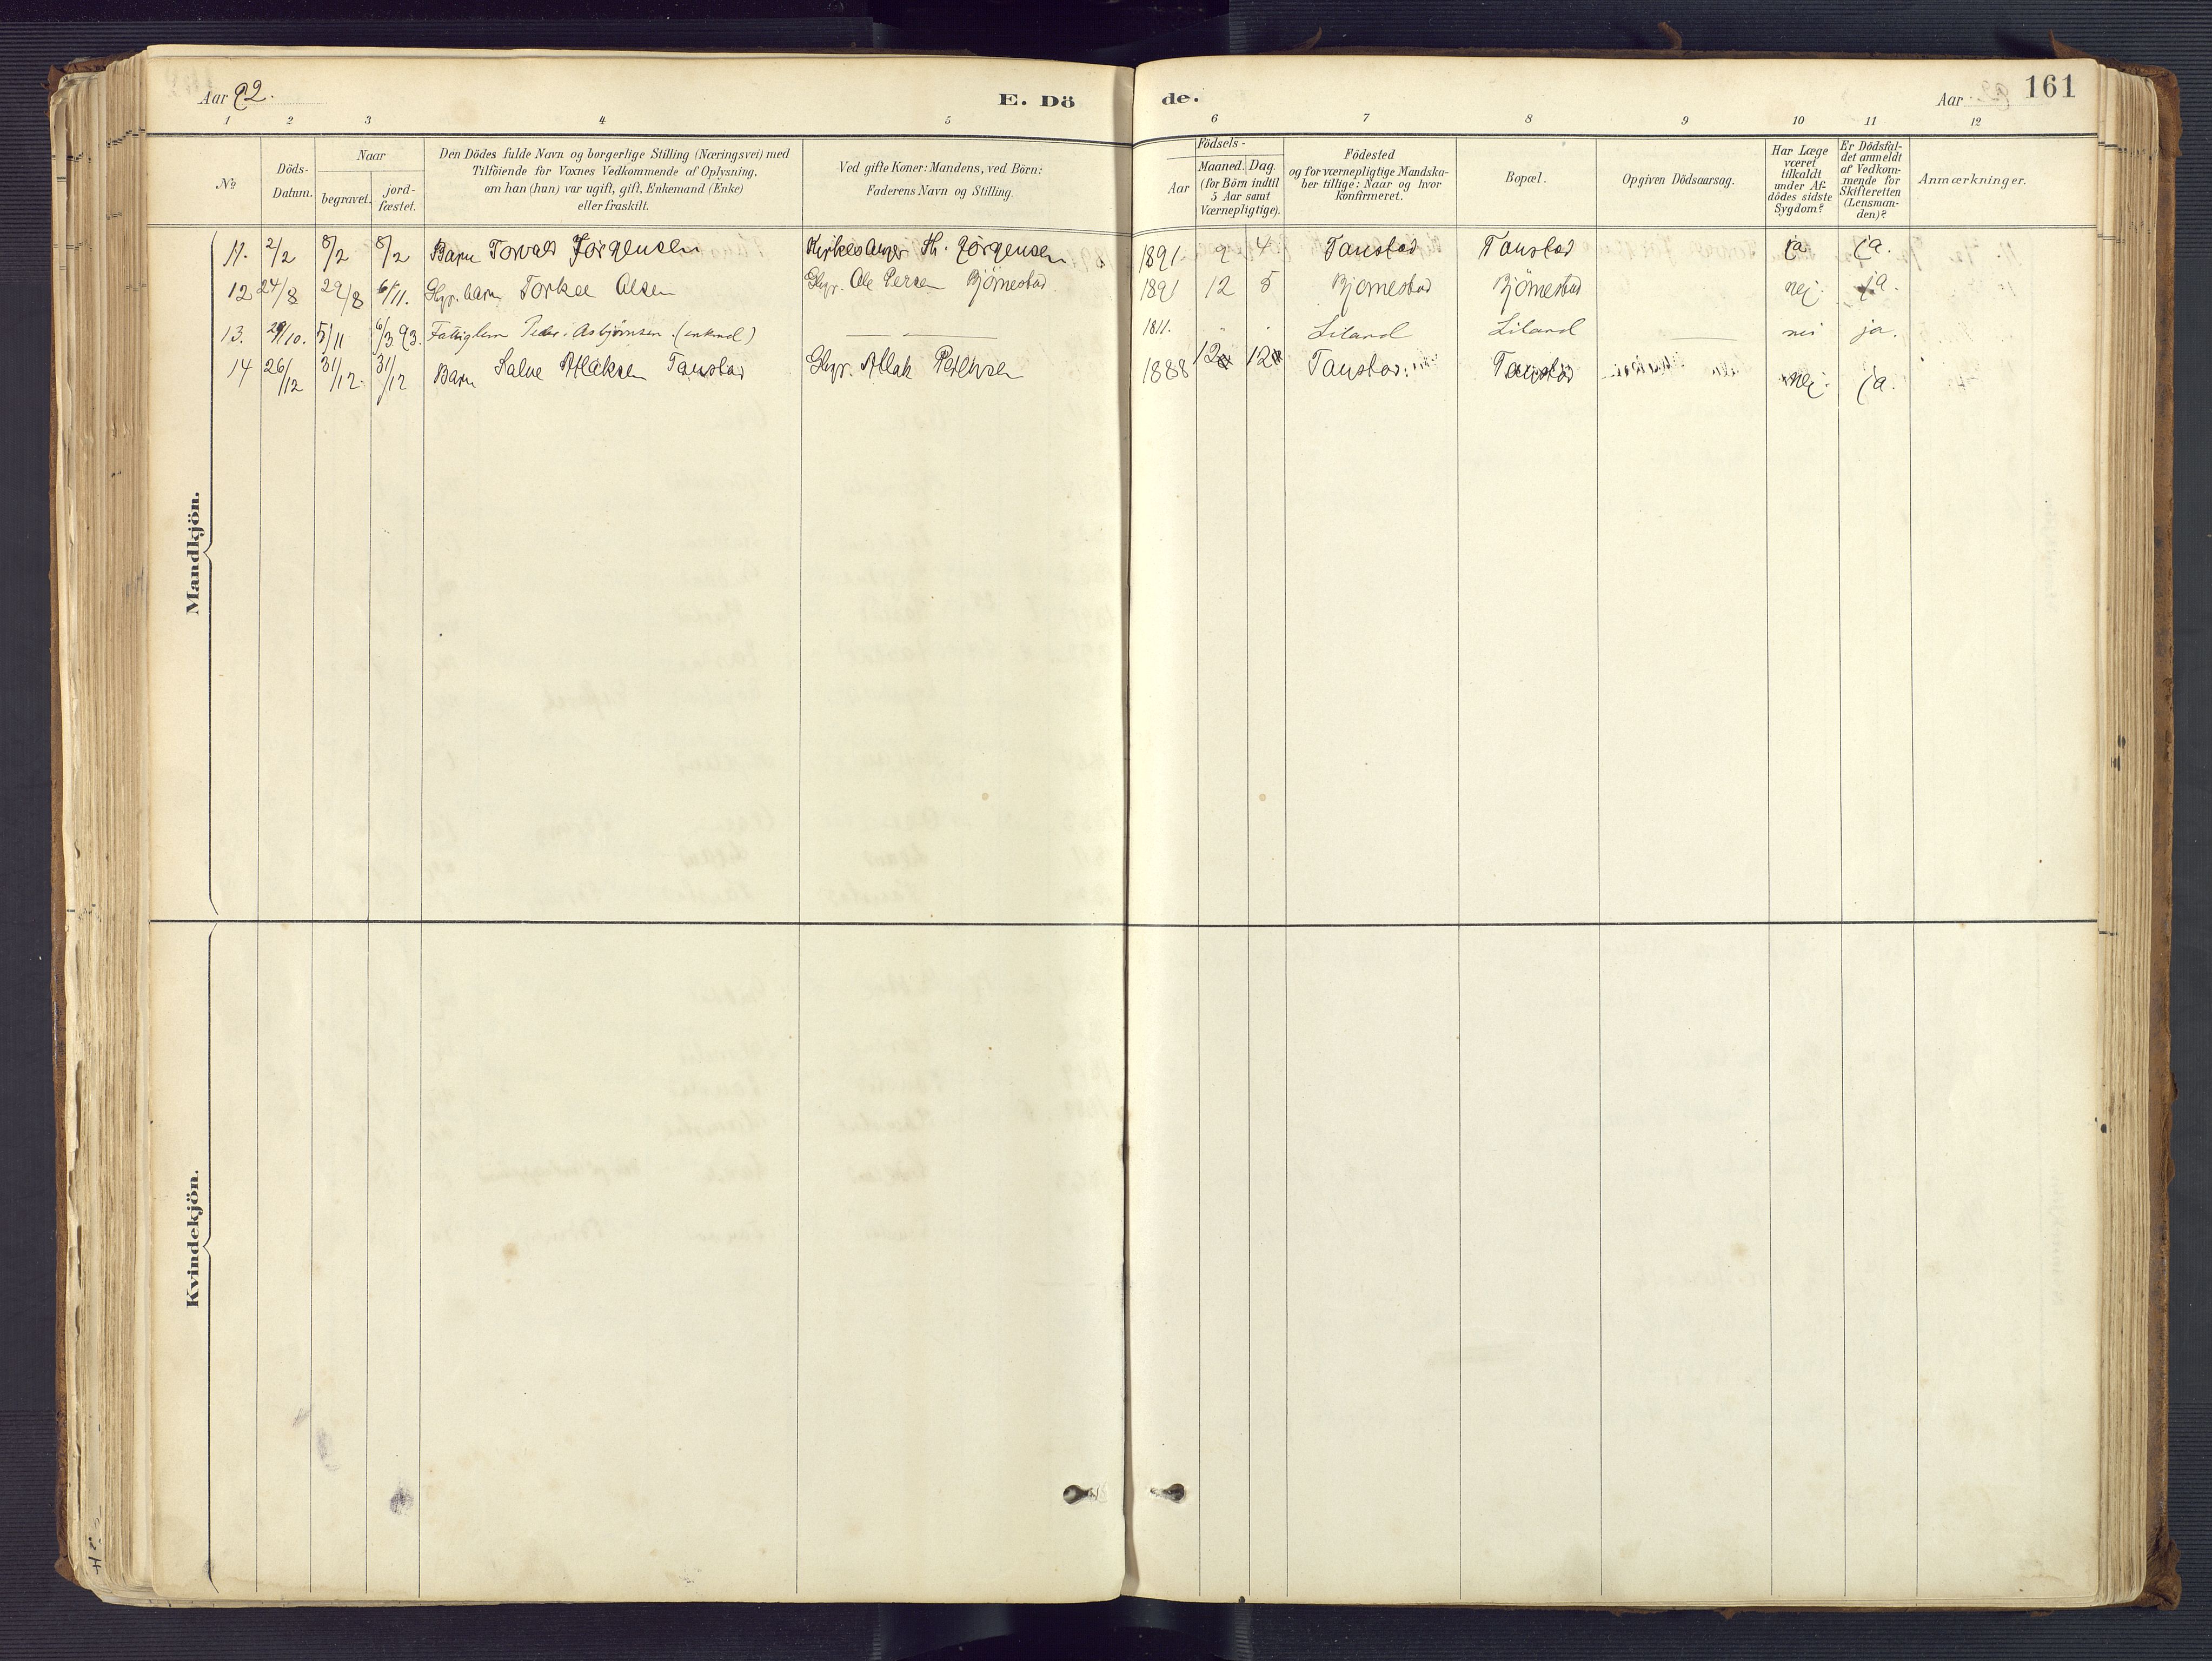 Aar 92. E. Dö de. Aar 161
1 2 3 4 5 6 7 8 9 10 11 12
No
Döds-
Datum.
Naar
begravet.
jord-
fæstet.
Den Dödes fulde Navn og borgerlige Stilling (Næringsvei) med
Tilföiende for Voxnes Vedkommende af Oplysning,
om han (hun) var ugift, gift, Enkemand (Enke)
eller fraskilt.
Ved gifte Koner: Mandens, ved Börn:
Faderens Navn og Stilling.
Födsels-
Aar
Maaned. Dag.
(for Börn indtil
5 Aar samt
Værnepligtige).
Födested
og for værnepligtige Mandska-
ber tillige: Naar og hvor
konfirmeret.
Bopæl.
Opgiven Dödsaarsag.
Har Læge
været
tilkaldt
under Af-
dödes sidste
Sygdom?
Er Dödsfal-
det anmeldt
af Vedkom-
mende for
Skifteretten
(Lensman-
den)?
Anmærkninger.
Mandkjön.
11. 2/2 8/2 8/2 Barn Torvald Jörgensen Th. Jörgensen 1891. 9 4 Tanstad Tanstad ja ja.
12 24/8 29/8 6/11. Gbr. barn Torkel Olsen Gbr. Ole Persen Bjömestad 1891 12 5 Bjomestad Bjömestad nej. ja.
13. 29/10. 5/11 6/3 93. Fattiglem Peder Asbjörnsen (enkmd) — „ — 1811. „ . Liland Liland — nei ja.
14 26/12 31/12. 31/12 Barn Salve Atlaksen Tanstad Gbr. Atlak Petersen 1888 12 12 Tanstad. Tanstad nej. ja.
Kvindekjön.